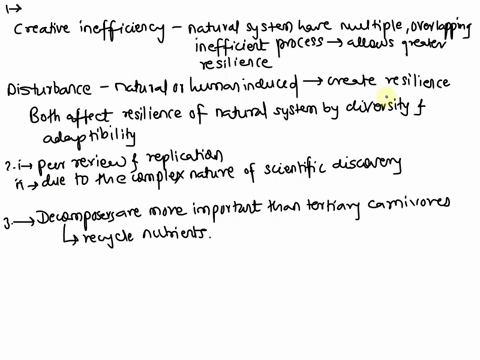 1→
Creative inefficiency – natural system have multiple, overlapping
inefficient process → allows greater
resilience
Disturbance – natural or human induced → create resilience
Both affect resilience of natural system by diversity &
adaptibility
2. i→ peer review & replication
ii→ due to the complex nature of scientific discovery
3. → Decomposers are more important than tertiary carnivores
↳ recycle nutrients.